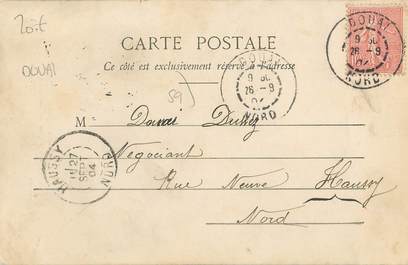 20.€
DOUAI
59
CARTE POSTALE
Ce côté est exclusivement réservé à l'adresse
DOUAI
9 30
26 - 9
04
NORD
DOUAI
9 30
26 - 9
04
NORD
M
Négociant
Rue Neuve Haussy
Nord
HAUSSY
27
SEPT
04
NORD